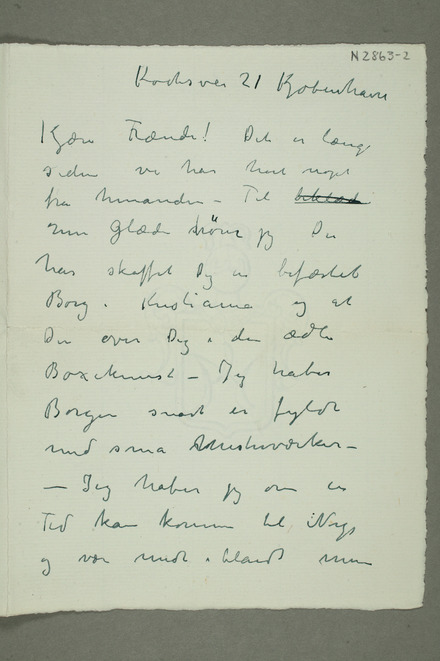 N 2863-2
Kochsvei 21 Kjøbenhavn
Kjære Frænde! Det er længe
siden vi har hørt noget
fra hinanden – Til
min Glæde hører jeg Du
har skaffet Dig en befæstet
Borg i Kristiania og at
Du øver Dig i den ædle
Boxekunst – Jeg haber
Borgen snart er fyldt
med små Mesterværker –
– Jeg haber jeg om en
Tid kan komme til Norge
og være midt iblandt mine